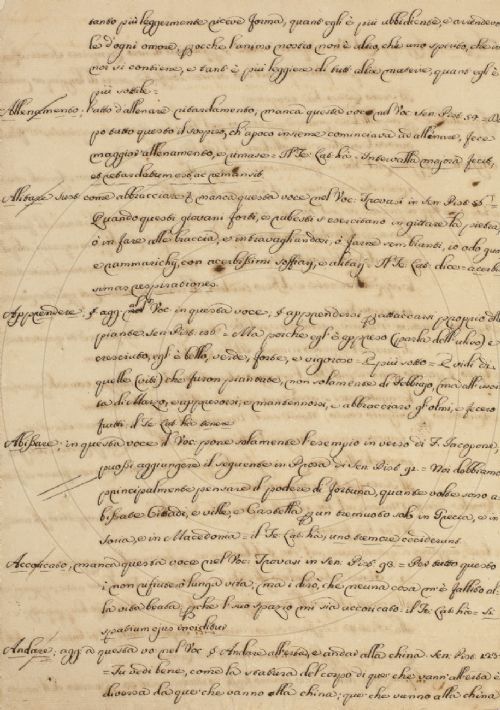 tanto più leggermente riceve forma, quant' egli è più ubbidiente, e arrendevo
le d'ogni omore, perche l'animo nostro non è altro, che uno spirito, che in
noi si contiene, e tant' è più leggiere di tutt' altre materie, quant' egli è
più sottile.
Allenamento: l'atto d'allenare ritardamento, manca questa voce nel Voc. Sen. Pist. 54. = Do
po tutto questo il sospiro, ch'apoco insieme cominciava ad allenare, fece
maggior' allenamento, e rimase = Il Te. Lat. hà. Intervalla majora fecit,
et retardatum est ac remansit.
Alitare sust. come abbracciare manca questa voce nel Voc. Trovasi in Sen. Pist. 56.
Quando questi giovani forti, e rubesti s'esercitano in gittare la pietra,
ò in fare alle braccia, e intravagliandosi, ò farne sembianti, io odo guai
e rammarichj, con acerbissimi soffiari, e alitari = Il Te. Lat. dice = acerbis
simas respirationes.
Apprendere: § agg. nel Voc. in questa voce, § apprendersi p. attaccarsi proprio delle
piante Sen. Pist. = Ma perche egli è appreso (parla dell'ulivo) e
cresciuto, egli è bello, verde, forte, e vigoroso = E più sotto = E vidi di
quelle (viti) che furon piantate, non solamente di Febbraio, ma all'usci
ta di Marzo, e appresorsi, e mantennorsi, e abbracciaro gli olmi, e fecero
frutti il Te. Lat. hà tenere
Abissare: in questa voce il Voc. pone solamente l'esempio in verso di F. Iacopone,
puossi aggiungere il seguente in Prosa di Sen. Pist. 91. = Noi dobbiamo
principalmente pensare il podere di fortuna, quante volte sono a
bissate Cittadi, e ville, e Castella p. un tremuoto solo in Grecia, e in
Soria, e in Macedonia = il Te. Lat. hà, uno tremore occiderunt.
Accorciato, manca questa voce nel Voc. Trovasi in Sen. Pist. 93. = Per tutto questo
i' non rifiuterei lunga vita, ma i' dirò, che neuna cosa m'è fallito al
la vita beata, perche 'l suo spazio mi sia accorciato. il Te. Lat. hà = si
spatium ejus inciditur
Andare, agg. a questa vo. nel Voc. § Andare all'erba, e andar alla china. Sen. Pist.
= Tu vedi bene, come la statura del corpo di quei che vann' all'erta è
diversa da quei che vanno alla china; quei che vanno alla china